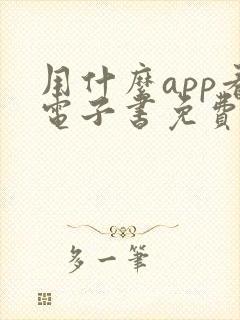 用什麼app看
電子書免費
多一筆